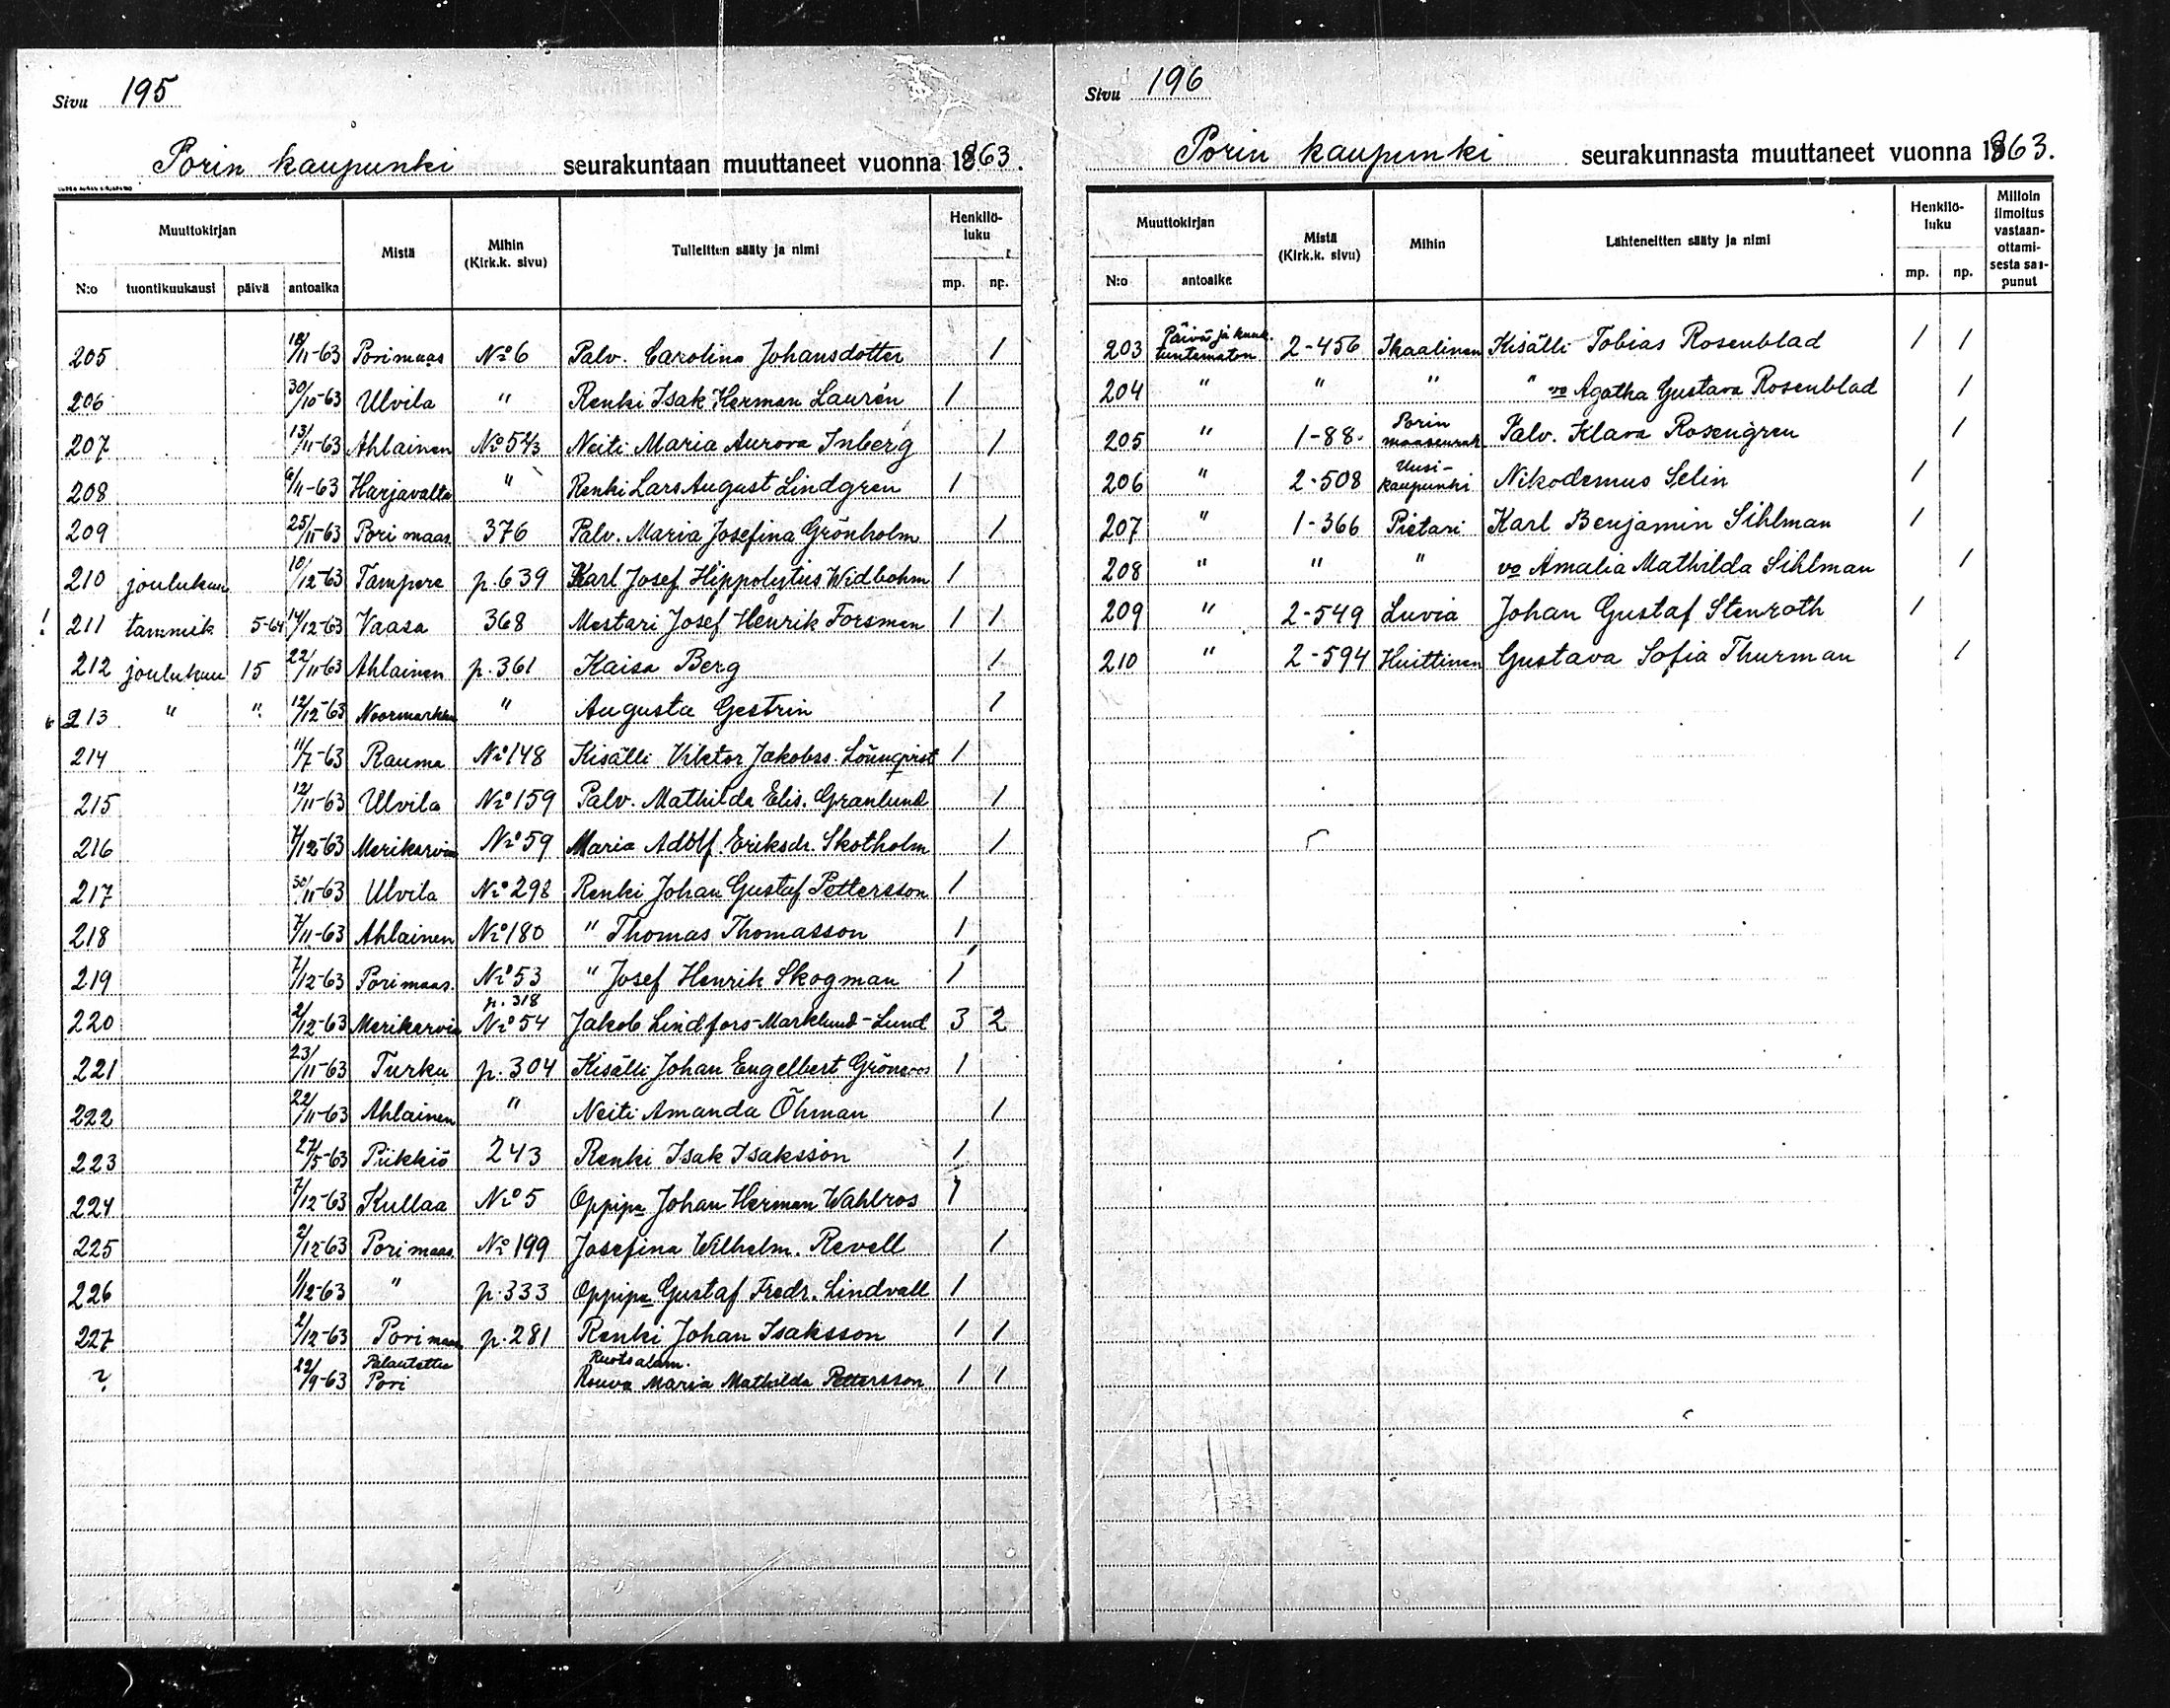 Sivu 195
Porin kaupunki seurakuntaan muuttaneet vuonna 1863.
Muuttokirjan Mistä Mihin (Kirk.k. sivu) Tulleitten sääty ja nimi Henkilö-luku
N:o tuontikuukausi päivä antoaika mp. np.
205 18/11-63 Porimaas No 6 Palv. Carolina Johansdotter 1
206 30/10-63 Ulvila " Renki Isak Herman Laurén 1
207 13/11-63 Ahlainen No 52/3 Neiti Maria Aurora Inberg 1
208 6/11-63 Harjavalta " Renki Lars August Lindgren 1
209 25/11-63 Pori maas. 376 Palv. Maria Josefina Grönholm 1
210 joulukuu 10/12-63 Tampere p. 639 Karl Josef Hippolytus Widbohm 1
! 211 tammik. 5-64 14/12-63 Vaasa 368 Mestari Josef Henrik Forsman 1 1
212 joulukuu 15 22/11-63 Ahlainen p. 361 Kaisa Berg 1
213 " " 12/12-63 Noormarkku " Augusta Gestrin 1
214 11/7-63 Rauma No 148 Kisälli Viktor Jakobss. Lönnqvist 1
215 12/11-63 Ulvila No 159 Palv. Mathilda Elis. Granlund 1
216 /12-63 Merikarvia No 59 Maria Adolf. Eriksdr. Skotholm 1
217 30/11-63 Ulvila No 298 Renki Johan Gustaf Pettersson 1
218 7/11-63 Ahlainen No 180 " Thomas Thomasson 1
219 7/12-63 Porimaas. No 53 " Josef Henrik Skogman 1
220 2/12-63 Merikarvia p. 318 No 54 Jakob Lindfors-Marklund-Lund 3 2
221 23/11-63 Turku p. 304 Kisälli Johan Engelbert Grönroos 1
222 22/11-63 Ahlainen " Neiti Amanda Öhman 1
223 27/5-63 Piikkiö 243 Renki Isak Isaksson 1
224 7/12-63 Kullaa No 5 Oppipa Johan Herman Wahlros 1
225 2/12-63 Porimaas. No 199 Josefina Wilhelm. Revell 1
226 1/12-63 " p. 333 Oppipa Gustaf Fredr. Lindvall 1
227 2/12-63 Pori maas p. 281 Renki Johan Isaksson 1 1
? 22/9-63 Palautettu Pori Ruotsalam. Rouva Maria Mathilda Pettersson 1 1
Sivu 196
Porin kaupunki seurakunnasta muuttaneet vuonna 1863.
Muuttokirjan Mistä (Kirk.k. sivu) Mihin Lähteneitten sääty ja nimi Henkilö-luku Milloin ilmoitus vastaan-ottami-sesta saa-punut
N:o antoaika mp. np.
203 Päivä ja kuuk. tuntematon 2-456 Ikaalinen Kisälli Tobias Rosenblad 1 1
204 " " " " vo Agatha Gustava Rosenblad 1
205 " 1-88. Porin maaseurak Palv. Klara Rosengren 1
206 " 2-508 Uusi-kaupunki Nikodemus Selin 1
207 " 1-366 Pietari Karl Benjamin Sihlman 1
208 " " " vo Amalia Mathilda Sihlman 1
209 " 2-549 Luvia Johan Gustaf Stenroth 1
210 " 2-594 Huittinen Gustava Sofia Thurman 1